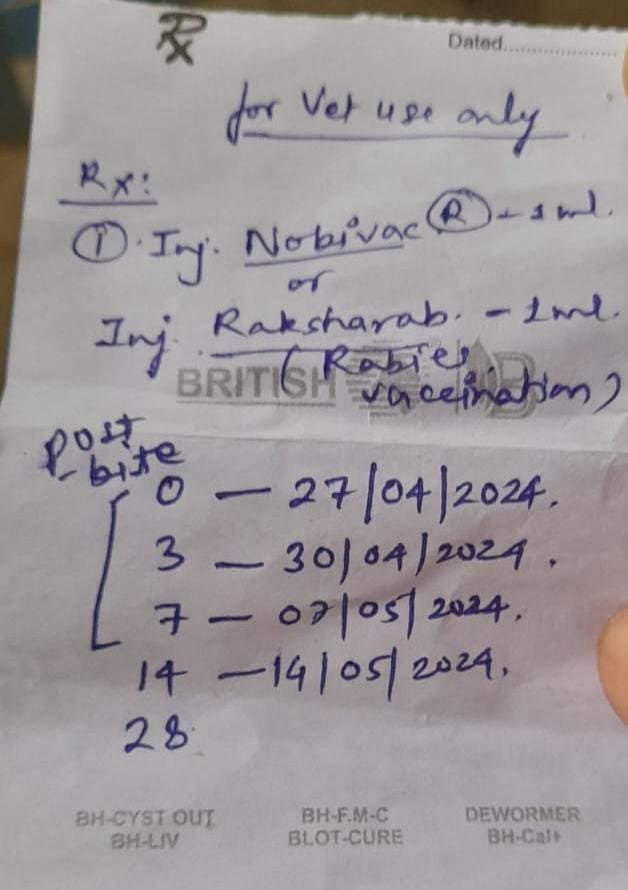 Rx
Dated....................
for Vet use only
Rx:
① Inj. Nobivac Ⓡ - 1 ml.
or
Inj. Raksharab. - 1 ml.
(Rabies
BRITISH
vaccination)
Post
bite
0 — 27/04/2024.
3 — 30/04/2024.
7 — 07/05/2024.
14 — 14/05/2024.
28
BH-CYST OUT BH-F.M-C DEWORMER
BH-LIV BLOT-CURE BH-Cal+